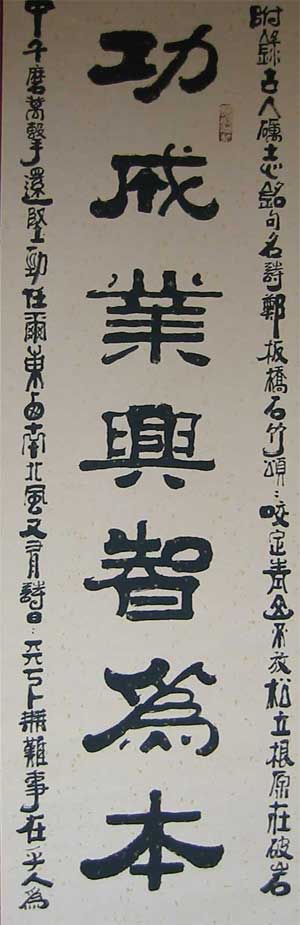 附錄古人礪志銘句名詩鄭板橋石竹頌：咬定青山不放松立根原在破岩
功成業興智為本
中千磨萬擊還堅勁任爾東西南北風又有詩曰：天下無難事在乎人為